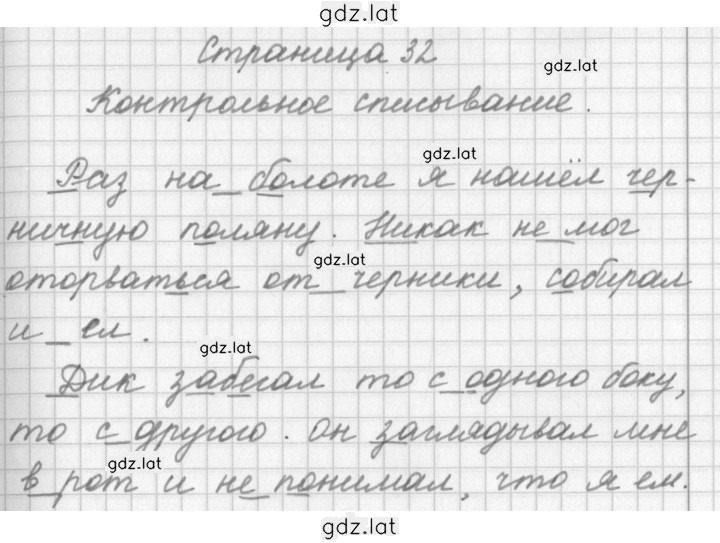 gdz.lat
Страница 32
gdz.lat
Контрольное списывание.
gdz.lat
Раз на болоте я нашёл чер-
ничную поляну. Никак не мог
gdz.lat
оторваться от черники, собирал
и ел.
gdz.lat
Дик забегал то с одного боку,
то с другого. Он заглядывал мне
gdz.lat
в рот и не понимал, что я ем.
gdz.lat